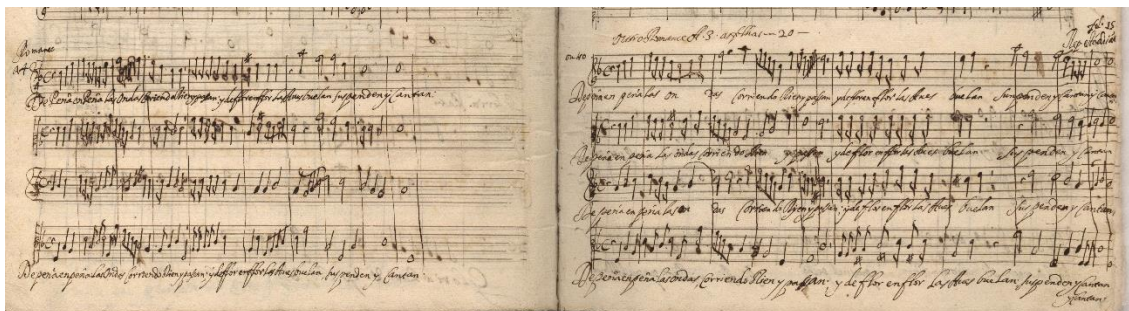 Romance
A 4
De Peña en Peña las ondas Corriendo Rien y pasan y de flor en flor las Aues buelan suspenden y Cantan:
De peña en peña las Ondas corriendo Rien y pasan y de flor en flor las Aues buelan suspenden y Cantan:
Romance A 3 20
fol. 35
De peña en peña las on das Corriendo Rien y pasan y de flor en flor las Aues buelan Suspenden y Cantan
De peña en peña las ondas Corriendo Rien y pasan y de flor en flor las Aues buelan Suspenden y Cantan
De peña en peña las on das Corriendo Rien y pasan y de flor en flor las Aues buelan Suspenden y Cantan,
De peña en peña las ondas Corriendo Rien y pasan y de flor en flor las Aues buelan suspenden y Cantan
y Cantan: